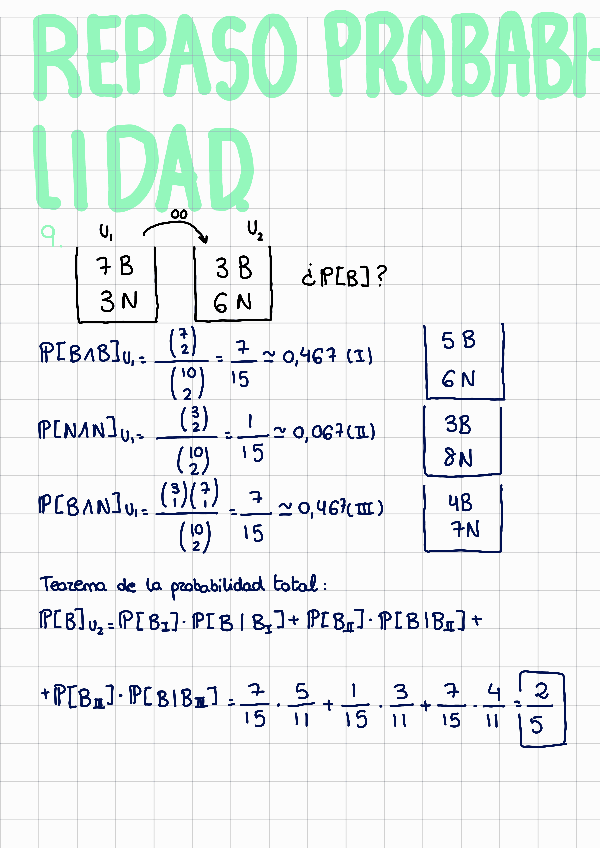 REPASO PROBABI-
LIDAD
9.
U₁ oo U₂
7 B
3 N
3 B
6 N
¿P[B]?
P[B∧B]U₁ = (7 2)/(10 2) = 7/15 ≃ 0,467 (I)
5 B
6 N
P[N∧N]U₁ = (3 2)/(10 2) = 1/15 ≃ 0,067 (II)
3B
8N
P[B∧N]U₁ = (3 1)(7 1)/(10 2) = 7/15 ≃ 0,467 (III)
4B
7N
Teorema de la probabilidad total:
P[B]U₂ = P[B_I]·P[B|B_I] + P[B_II]·P[B|B_II] +
+P[B_III]·P[B|B_III] = 7/15 · 5/11 + 1/15 · 3/11 + 7/15 · 4/11 = 2/5